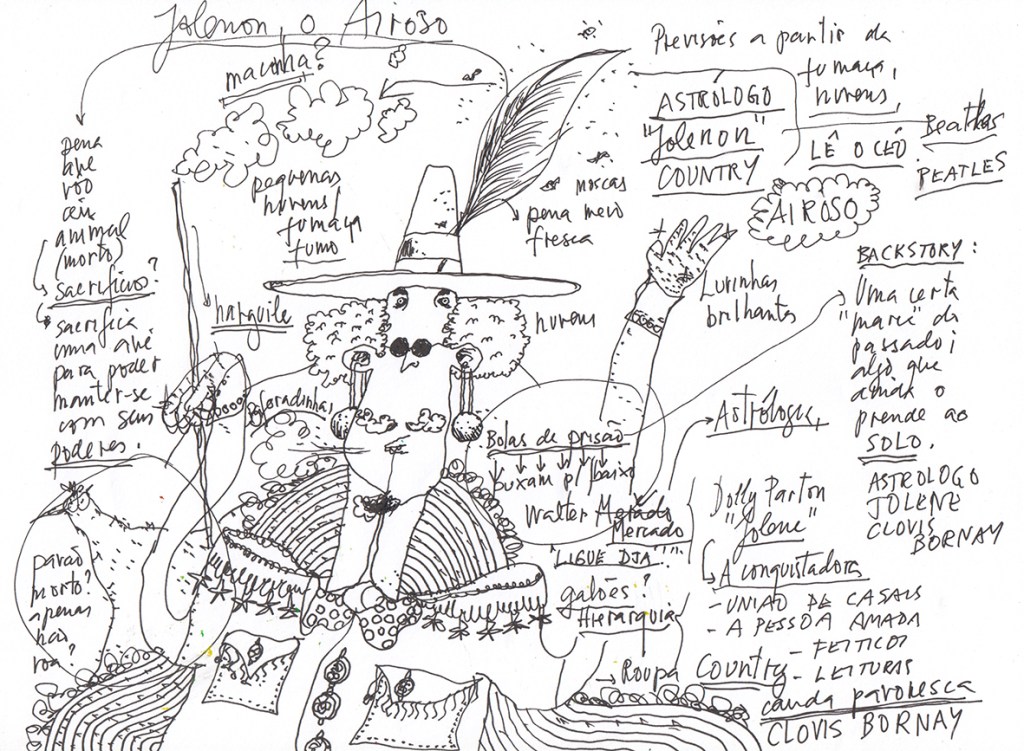 Jolenon, o Airoso
maconha?
Previsões a partir da
fumaça,
nuvens,
ASTRÓLOGO
"Jolenon"
COUNTRY
LÊ O CÉU
Beatles
BEATLES
AIROSO
pena
ave
voo
animal
(morto)
sacrifícios?
sacrifica
uma ave
para poder
manter-se
com seus
poderes.
pequenas
nuvens,
fumaça
fumo
narguile
moscas
pena meio
fresca
nuvens
Luvinhas
brilhantes
BACKSTORY:
Uma certa
"maré" do
passado,
algo que
ainda o
prende ao
SOLO.
ASTROLOGO
JOLENE
CLOVIS
BORNAY
Bolas de prisão
puxam p/ baixo
Walter
Mercado
"LIGUE DJA"
Astrólogas,
Dolly Parton
"Jolene"
A conquistadora
- UNIÃO DE CASAIS
- A PESSOA AMADA
- FEITIÇOS
- LEITURAS
galões?
Hierarquia
Roupa Country
cauda pavonesca
CLOVIS BORNAY
pavão
morto?
apenas
não
voa?